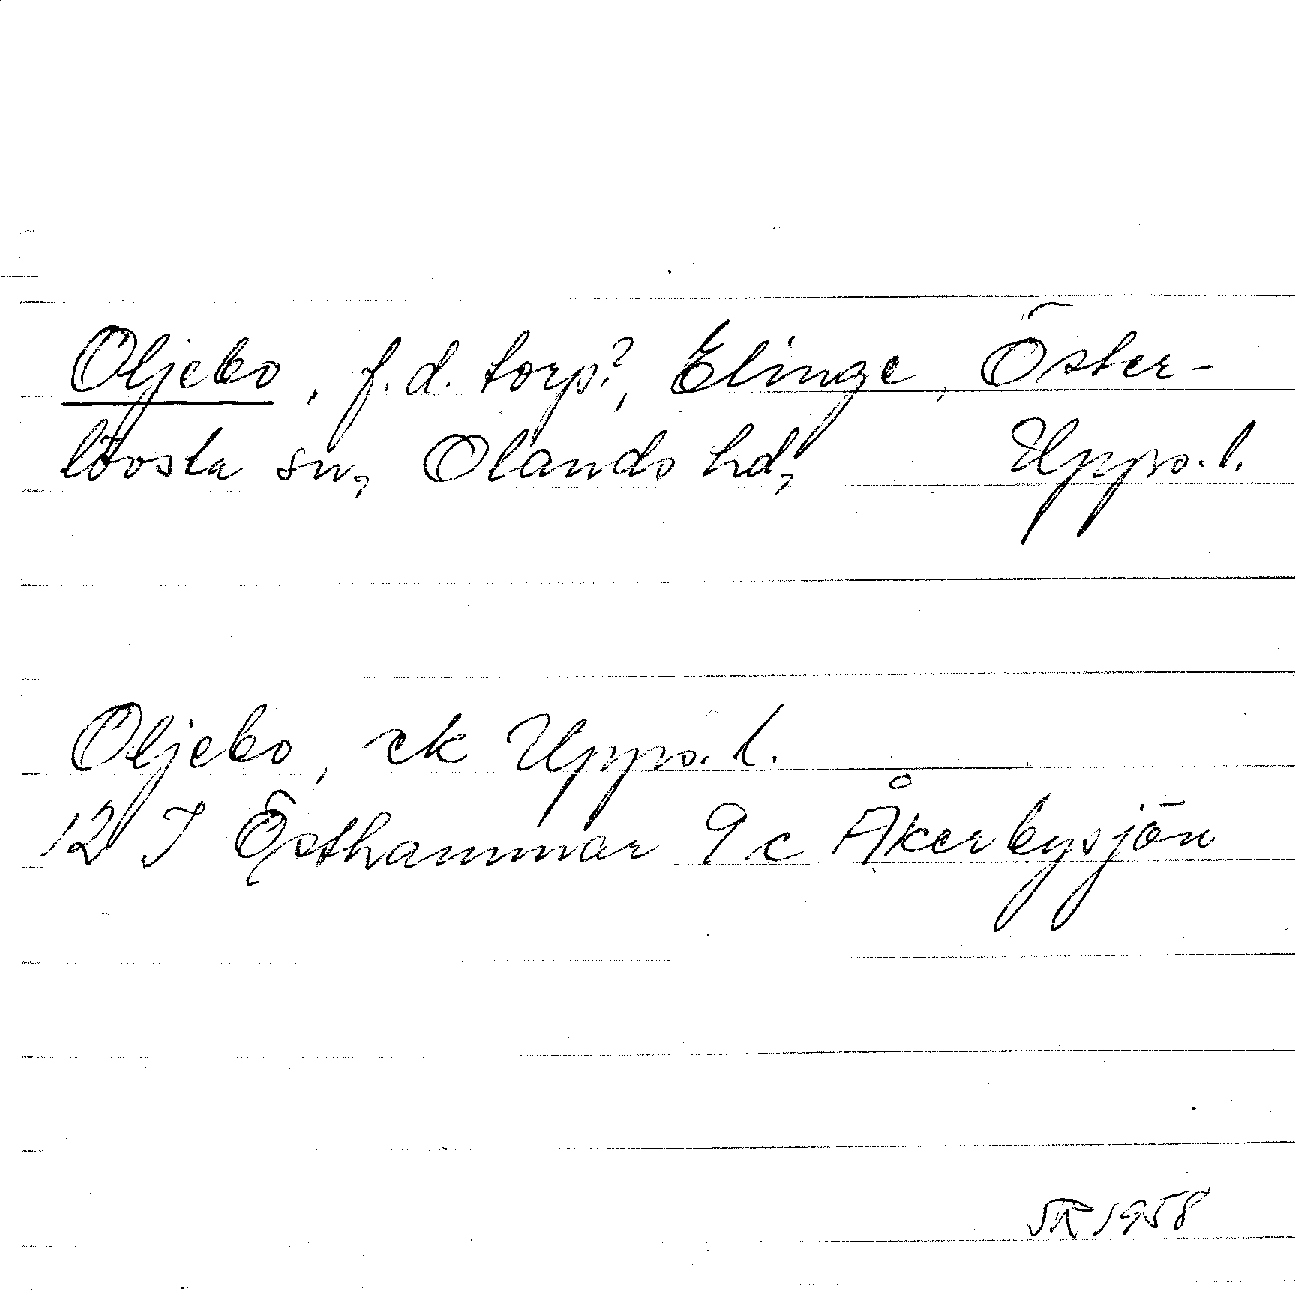 Oljebo, f.d. torp?, Elinge, Öster-
lövsta sn, Olands hd, Upps.l.
Oljebo, ek Upps.l.
12 I Östhammar 9 c Åkerbysjön
SR 1958